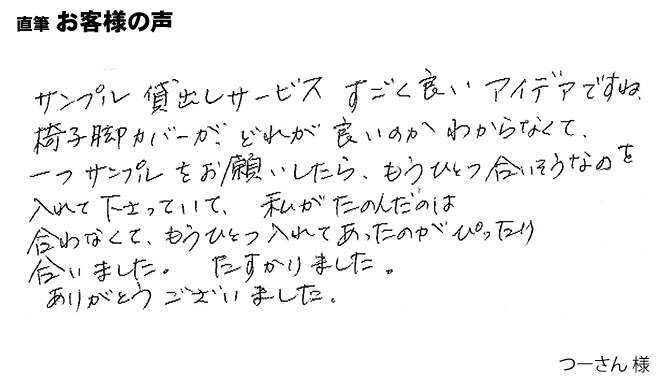 直筆 お客様の声
サンプル 貸出しサービス すごく良い アイデアですね、
椅子脚カバーが、どれが 良いのか わからなくて、
一つ サンプル をお願いしたら、もうひとつ 合いそうなのを
入れて 下さっていて、 私がたのんだのは
合わなくて、もうひとつ入れてあったのが ぴったり
合いました。 たすかりました。
ありがとうございました。
つーさん 様